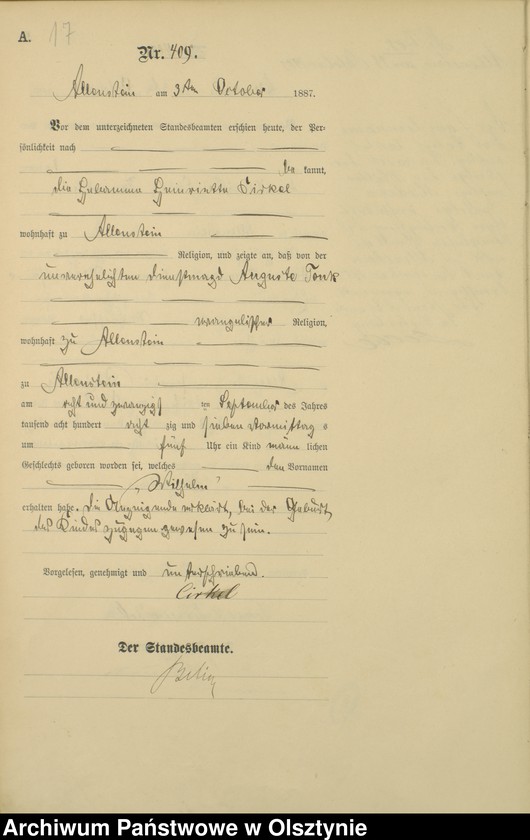 A. 17
Nr. 409.
Allenstein am 3ten October 1887.
Vor dem unterzeichneten Standesbeamten erschien heute, der Per-
sönlichkeit nach
be kannt,
die Hebamme Henriette Cirkel
wohnhaft zu Allenstein
Religion, und zeigte an, daß von der
unverehelichten Dienstmagd Auguste
evangelischer Religion,
wohnhaft zu Allenstein
zu Allenstein
am acht und zwanzigs ten September des Jahres
tausend acht hundert acht zig und sieben Vormittag s
um fünf Uhr ein Kind männ lichen
Geschlechts geboren worden sei, welches den Vornamen
„Wilhelm"
erhalten habe. Die Anzeigende erklärt, bei der Geburt
des Kindes zugegen gewesen zu sein.
Vorgelesen, genehmigt und unterschrieben.
Cirkel
Der Standesbeamte.
Archiwum Państwowe w Olsztynie